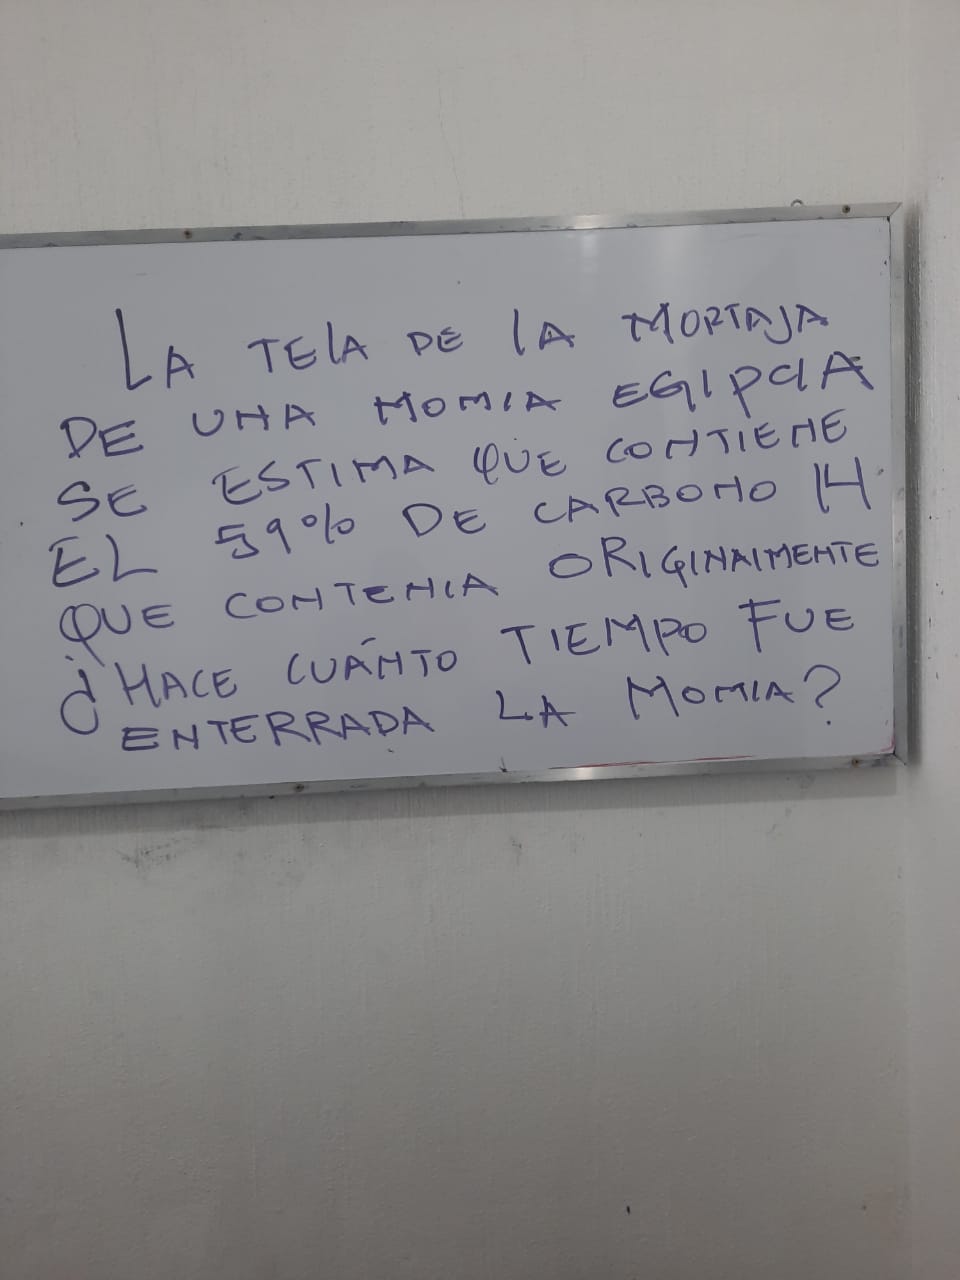 LA TELA DE LA MORTAJA
DE UNA MOMIA EGIPCIA
SE ESTIMA QUE CONTIENE
EL 59% DE CARBONO 14
QUE CONTENIA ORIGINALMENTE
¿HACE CUÁNTO TIEMPO FUE
ENTERRADA LA MOMIA?